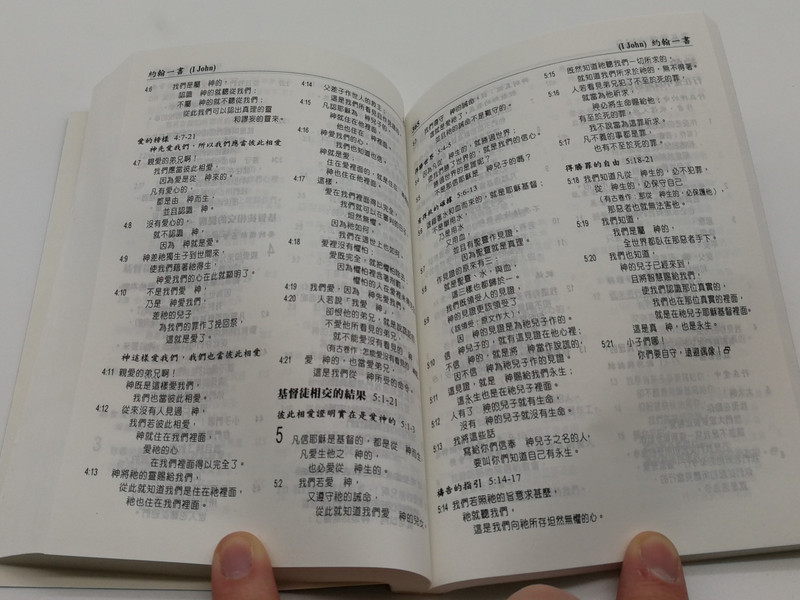 約翰一書 (I John)
4:6 我們是屬 神的,
認識 神的就聽從我們;
不屬 神的就不聽從我們;
從此我們可以認出真理的靈
和謬妄的靈來。
愛的榜樣 4:7-21
神先愛我們,所以我們應當彼此相愛
4:7 親愛的弟兄啊!
我們應當彼此相愛,
因為愛是從 神來的。
凡有愛心的,
都是由 神而生,
並且認識 神。
4:8 沒有愛心的,
就不認識 神,
因為 神就是愛。
4:9 神差祂獨生子到世間來,
使我們藉著祂得生,
神愛我們的心在此就顯明了。
4:10 不是我們愛 神,
乃是 神愛我們,
差祂的兒子
為我們的罪作了挽回祭,
這就是愛了。
神這樣愛我們,我們也當彼此相愛
4:11 親愛的弟兄啊!
神既是這樣愛我們,
我們也當彼此相愛。
4:12 從來沒有人見過 神,
我們若彼此相愛,
神就住在我們裡面。
愛祂的心
在我們裡面得以完全了。
4:13 神將祂的靈賜給我們,
從此就知道我們是住在祂裡面,
祂也住在我們裡面。
4:14 父差子作世人的救主;
這是我們所看見且作見證的。
4:15 凡認耶穌為 神兒子的,
神就住在他裡面,
他也住在 神裡面。
4:16 神愛我們的心,
我們也知道也信。
神就是愛;
住在愛裡面的,就是住在
神也住在他裡面。
4:17 這樣,
愛在我們裡面得以完全,
我們就可以在審判的日子
坦然無懼。
因為祂如何,
我們在這世上也如何。
4:18 愛裡沒有懼怕;
愛既完全,就把懼怕除去,
因為懼怕裡含著刑罰;
懼怕的人在愛裡未得
4:19 我們愛,因為 神先愛我們。
4:20 人若說「我愛 神」,
卻恨他的弟兄,就是說謊話的;
不愛他所看見的弟兄,
就不能愛沒有看見的 神
(有古卷作:怎能愛沒有看見的
4:21 愛 神的,也當愛弟兄,
這是我們從 神所受的命令。
基督徒相交的結果 5:1-21
彼此相愛證明實在是愛神的 5:1-3
5 凡信耶穌是基督的,都是從 神而
凡愛生他之 神的,
也必愛從 神生的。
5:2 我們若愛 神,
又遵守祂的誡命,
從此就知道我們愛 神的兒女。
(I John) 約翰一書
我們遵守 神的誡命,
這就是愛祂了,
並且祂的誡命不是難守的。
5:4-5
因為凡從 神生的,就勝過世界;
使我們勝了世界的,就是我們的信心。
勝過世界的是誰呢?
不是那信耶穌是 神兒子的嗎?
5:6-13
這藉著水和血而來的,就是耶穌基督;
不是單用水,
乃是用水
又用血,
並且有聖靈作見證,
因為聖靈就是真理。
作見證的原來有三:
5:8 就是聖靈、水,與血,
這三樣也都歸於一。
5:9 我們既領受人的見證,
神的見證更該領受了
(該領受:原文作大),
因 神的見證是為祂兒子作的。
5:10 信 神兒子的,就有這見證在他心裡;
不信 神的,就是將 神當作說謊的,
因不信 神為祂兒子作的見證。
5:11 這見證,就是 神賜給我們永生;
這永生也是在祂兒子裡面。
5:12 人有了 神的兒子就有生命,
沒有 神的兒子就沒有生命。
5:13 我將這些話
寫給你們信奉 神兒子之名的人,
要叫你們知道自己有永生。
禱告的指引 5:14-17
5:14 我們若照祂的旨意求甚麼,
祂就聽我們,
這是我們向祂所存坦然無懼的心。
5:15 既然知道祂聽我們一切所求的,
就知道我們所求於祂的,無不得著。
5:16 人若看見弟兄犯了不至於死的罪,
就當為他祈求,
神必將生命賜給他;
有至於死的罪,
我不說當為這罪祈求。
5:17 凡不義的事都是罪,
也有不至於死的罪。
得勝罪的自由 5:18-21
5:18 我們知道凡從 神生的,必不犯罪,
從 神生的,必保守自己
(有古卷作:那從 神生的,必保護他),
那惡者也就無法害他。
5:19 我們知道,
我們是屬 神的,
全世界都臥在那惡者手下。
5:20 我們也知道,
神的兒子已經來到,
且將智慧賜給我們,
使我們認識那位真實的,
我們也在那位真實的裡面,
就是在祂兒子耶穌基督裡面。
這是真 神,也是永生。
5:21 小子們哪!
你們要自守,遠避偶像!